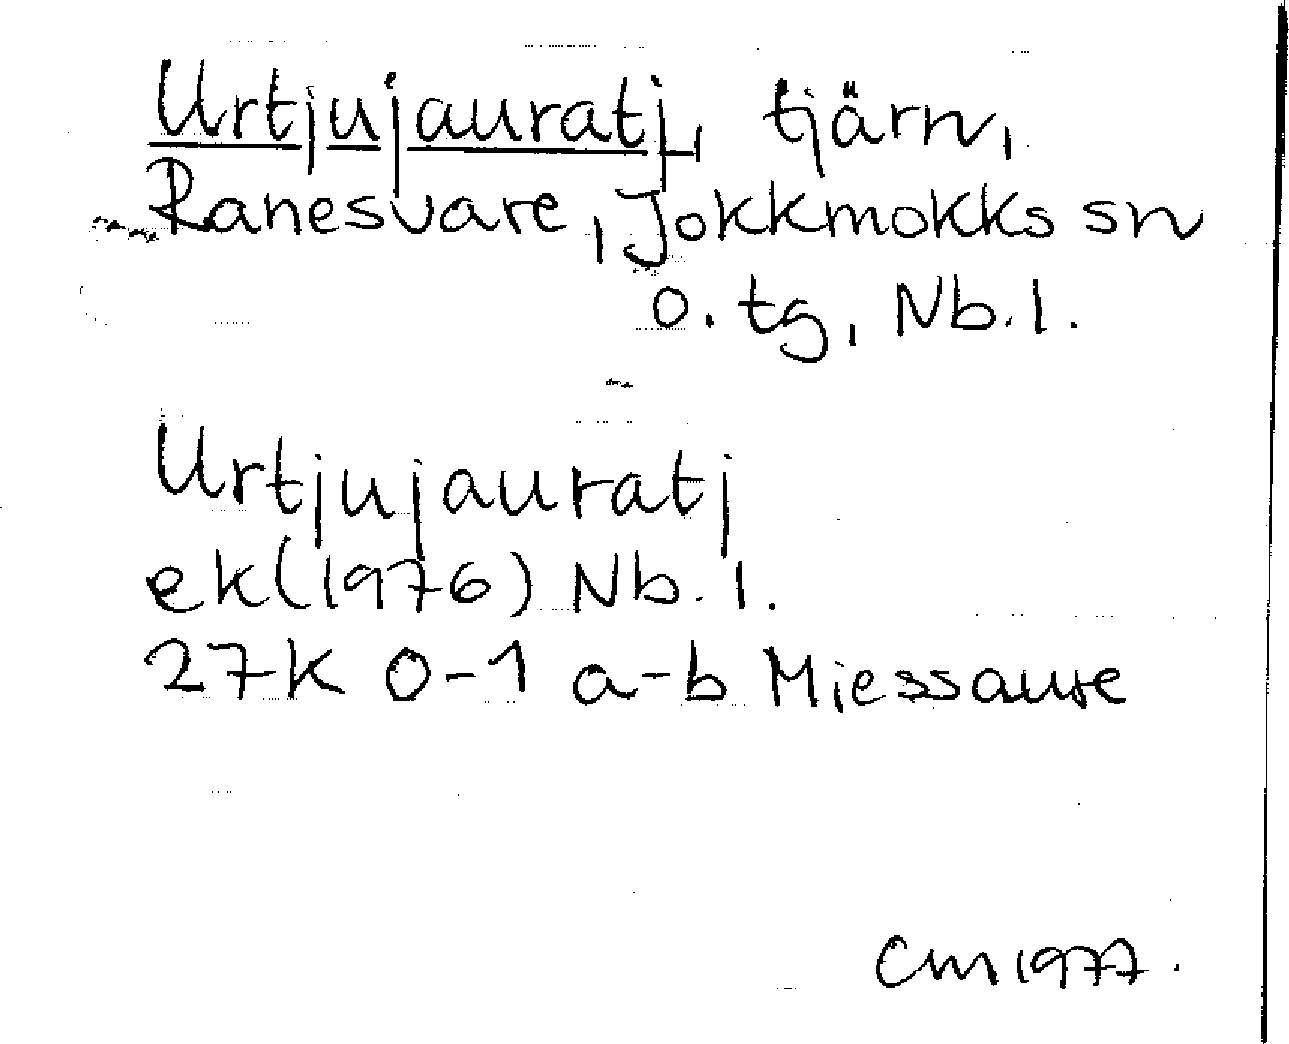 Urtjujauratj, tjärn,
Ranesvare, Jokkmokks sn
o. tg, Nb.l.
Urtjujauratj
ek(1976) Nb.l.
27K 0-1 a-b Miessaure
CM 1977.